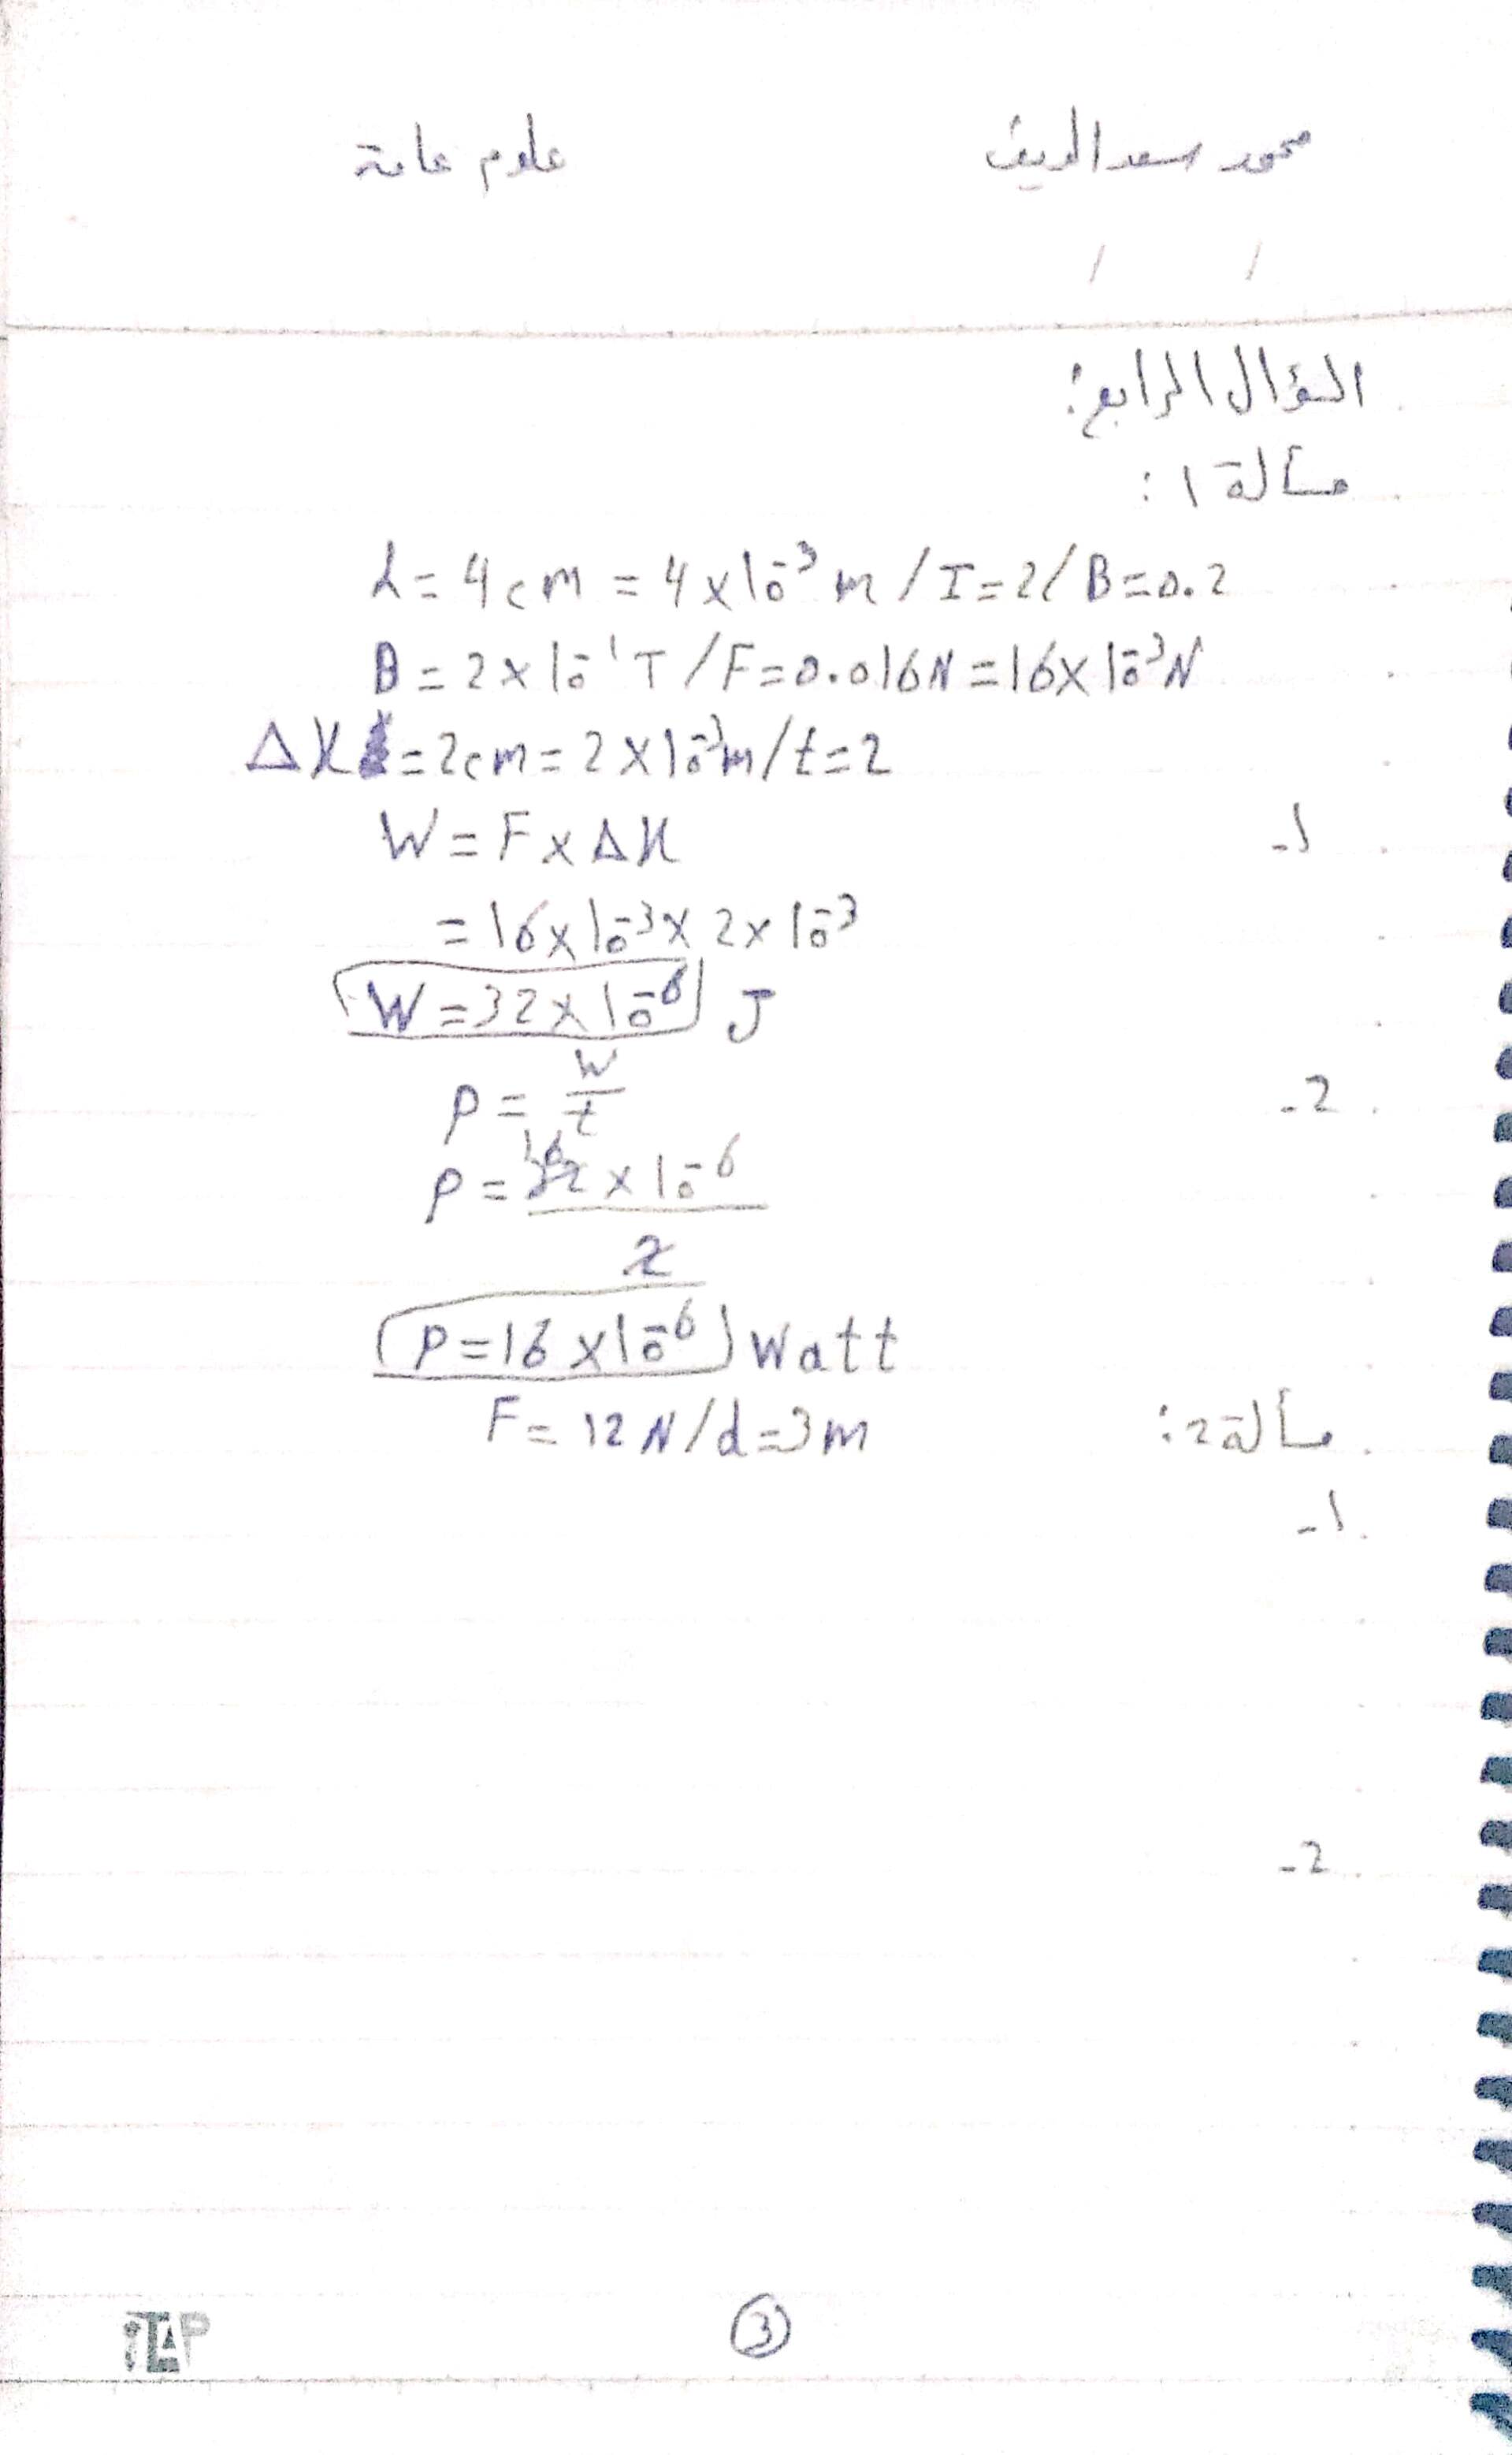 محمود سعد الديف علوم عامة
/ /
السؤال الرابع:
مسألة 1:
L = 4cm = 4 × 10⁻³ m / I = 2 / B = 0.2
B = 2 × 10⁻¹ T / F = 0.016N = 16 × 10⁻³ N
ΔX = 2cm = 2 × 10⁻³ m / t = 2
1- W = F × ΔX
= 16 × 10⁻³ × 2 × 10⁻³
W = 32 × 10⁻⁶ J
2- P = W/t
P = 32 × 10⁻⁶ / 2
16
P = 16 × 10⁻⁶ Watt
مسألة 2: F = 12 N / d = 3m
1-
2-
3
TAP